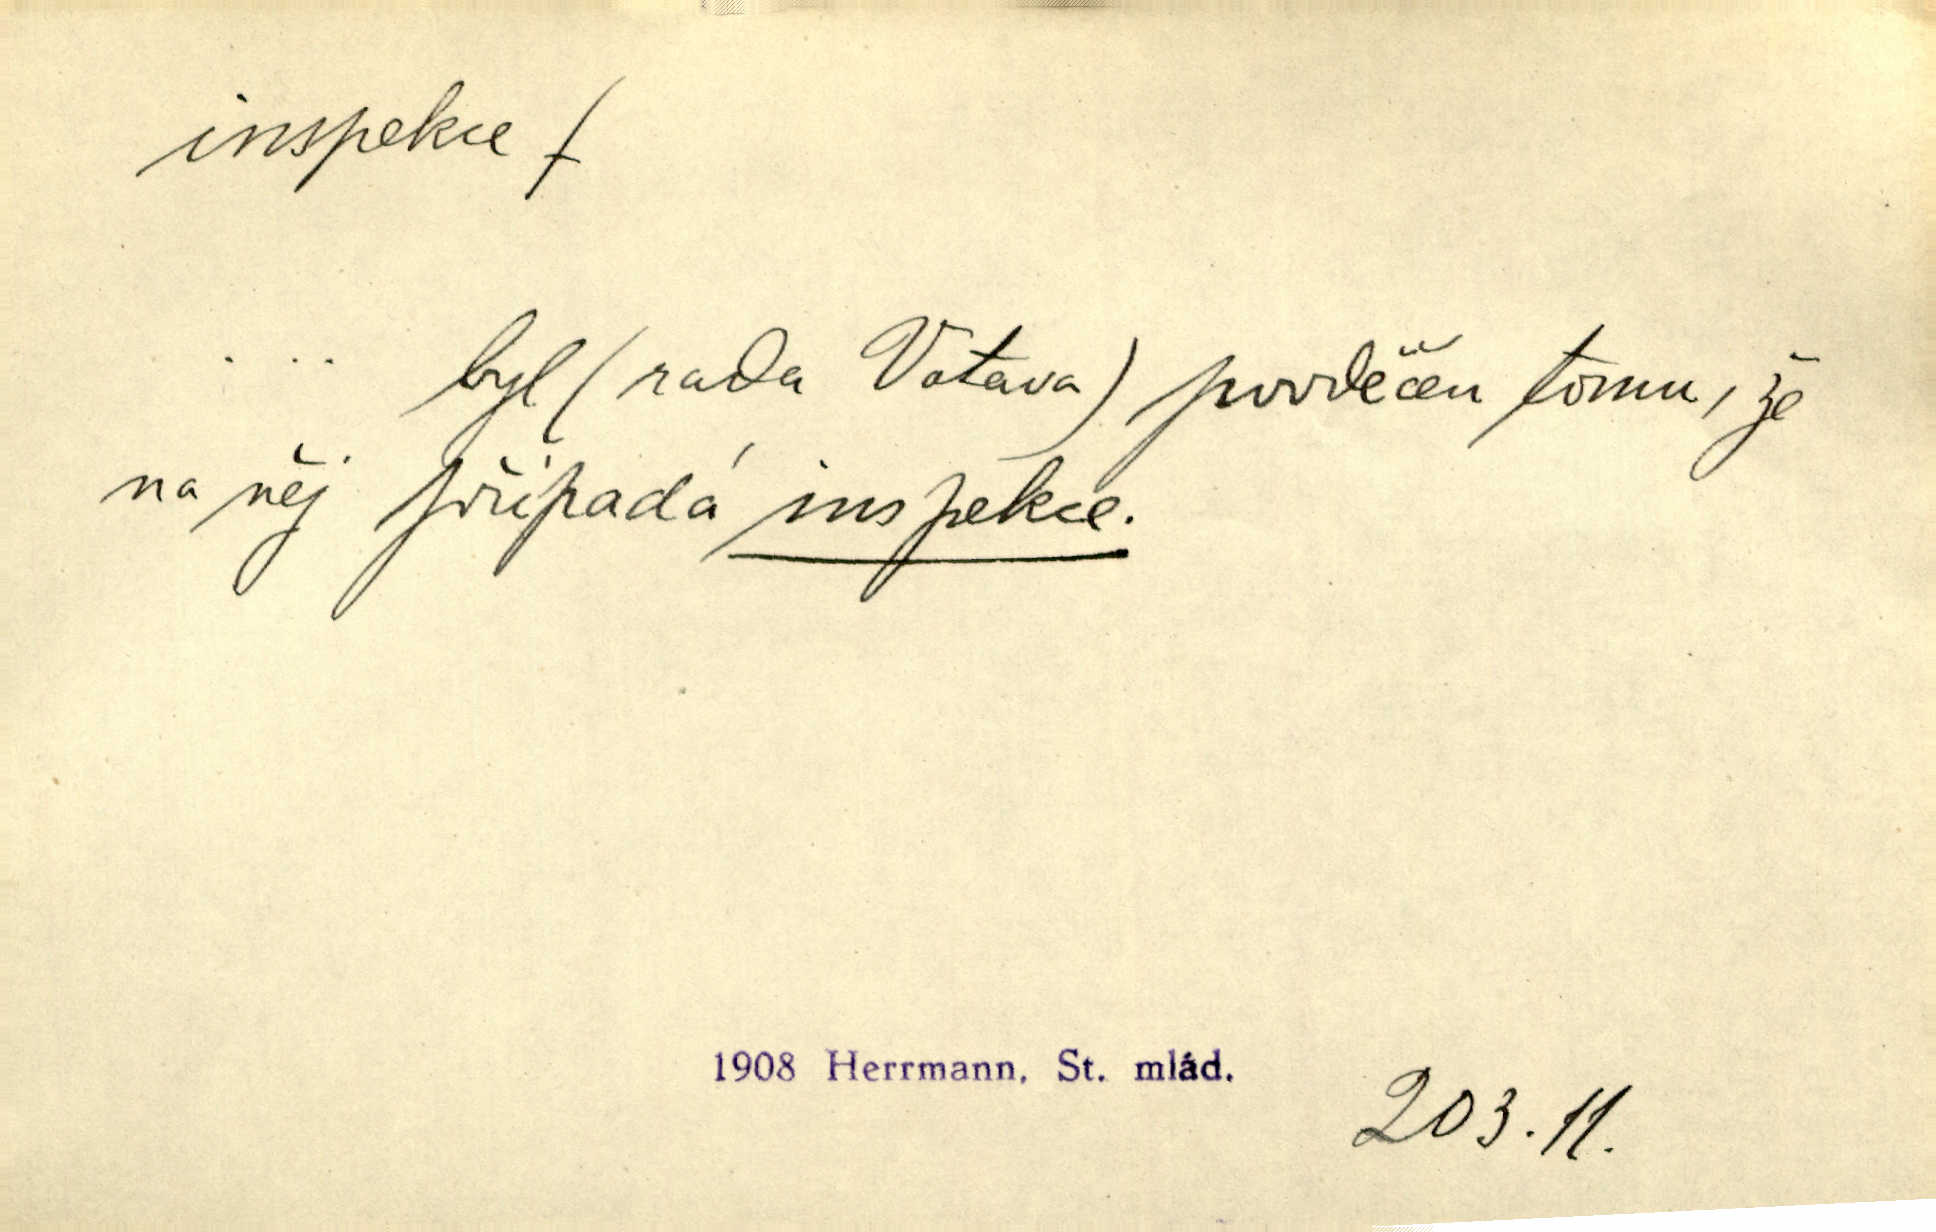 inspekce f
... byl (rada Votava) povděčen tomu, že
na něj připadá inspekce.
1908 Herrmann, St. mlád.
203.11.